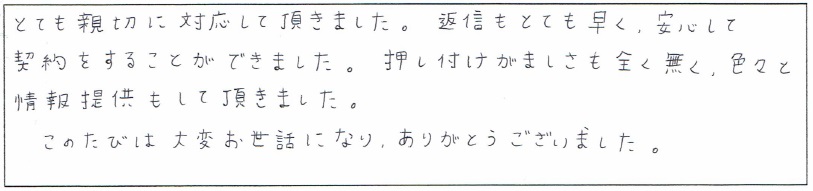 とても親切に対応して頂きました。返信もとても早く、安心して
契約をすることができました。押し付けがましさも全く無く、色々と
情報提供もして頂きました。
このたびは大変お世話になり、ありがとうございました。